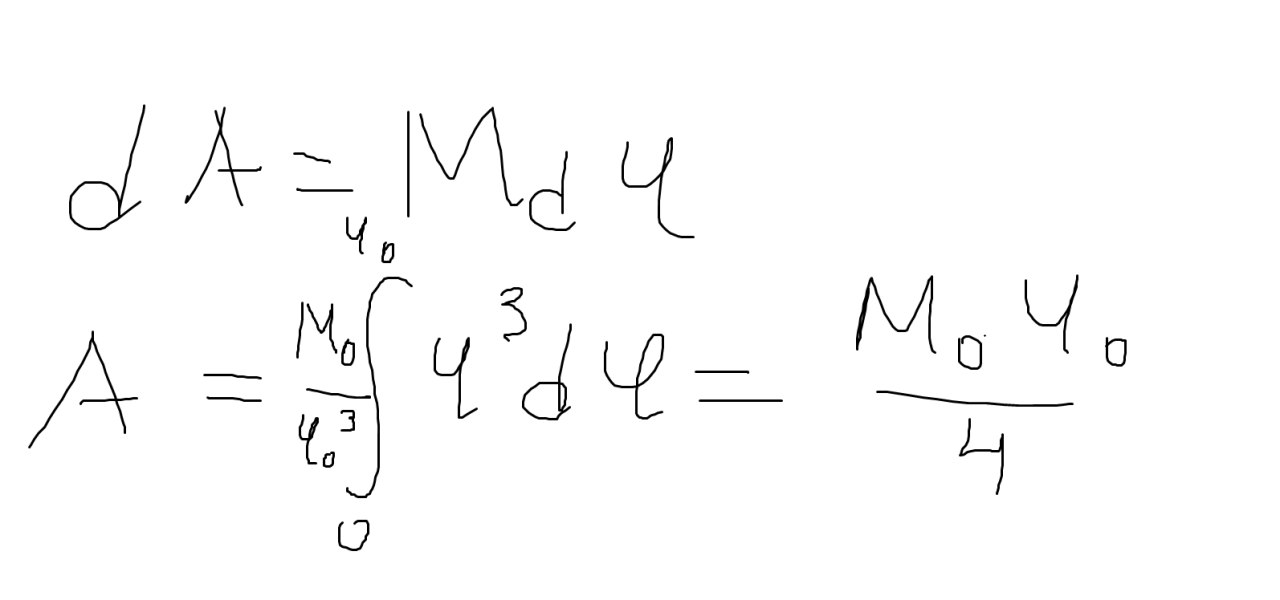 dA = Mdφ
A = M₀/φ₀³ ∫₀^φ₀ φ³dφ = M₀φ₀/4